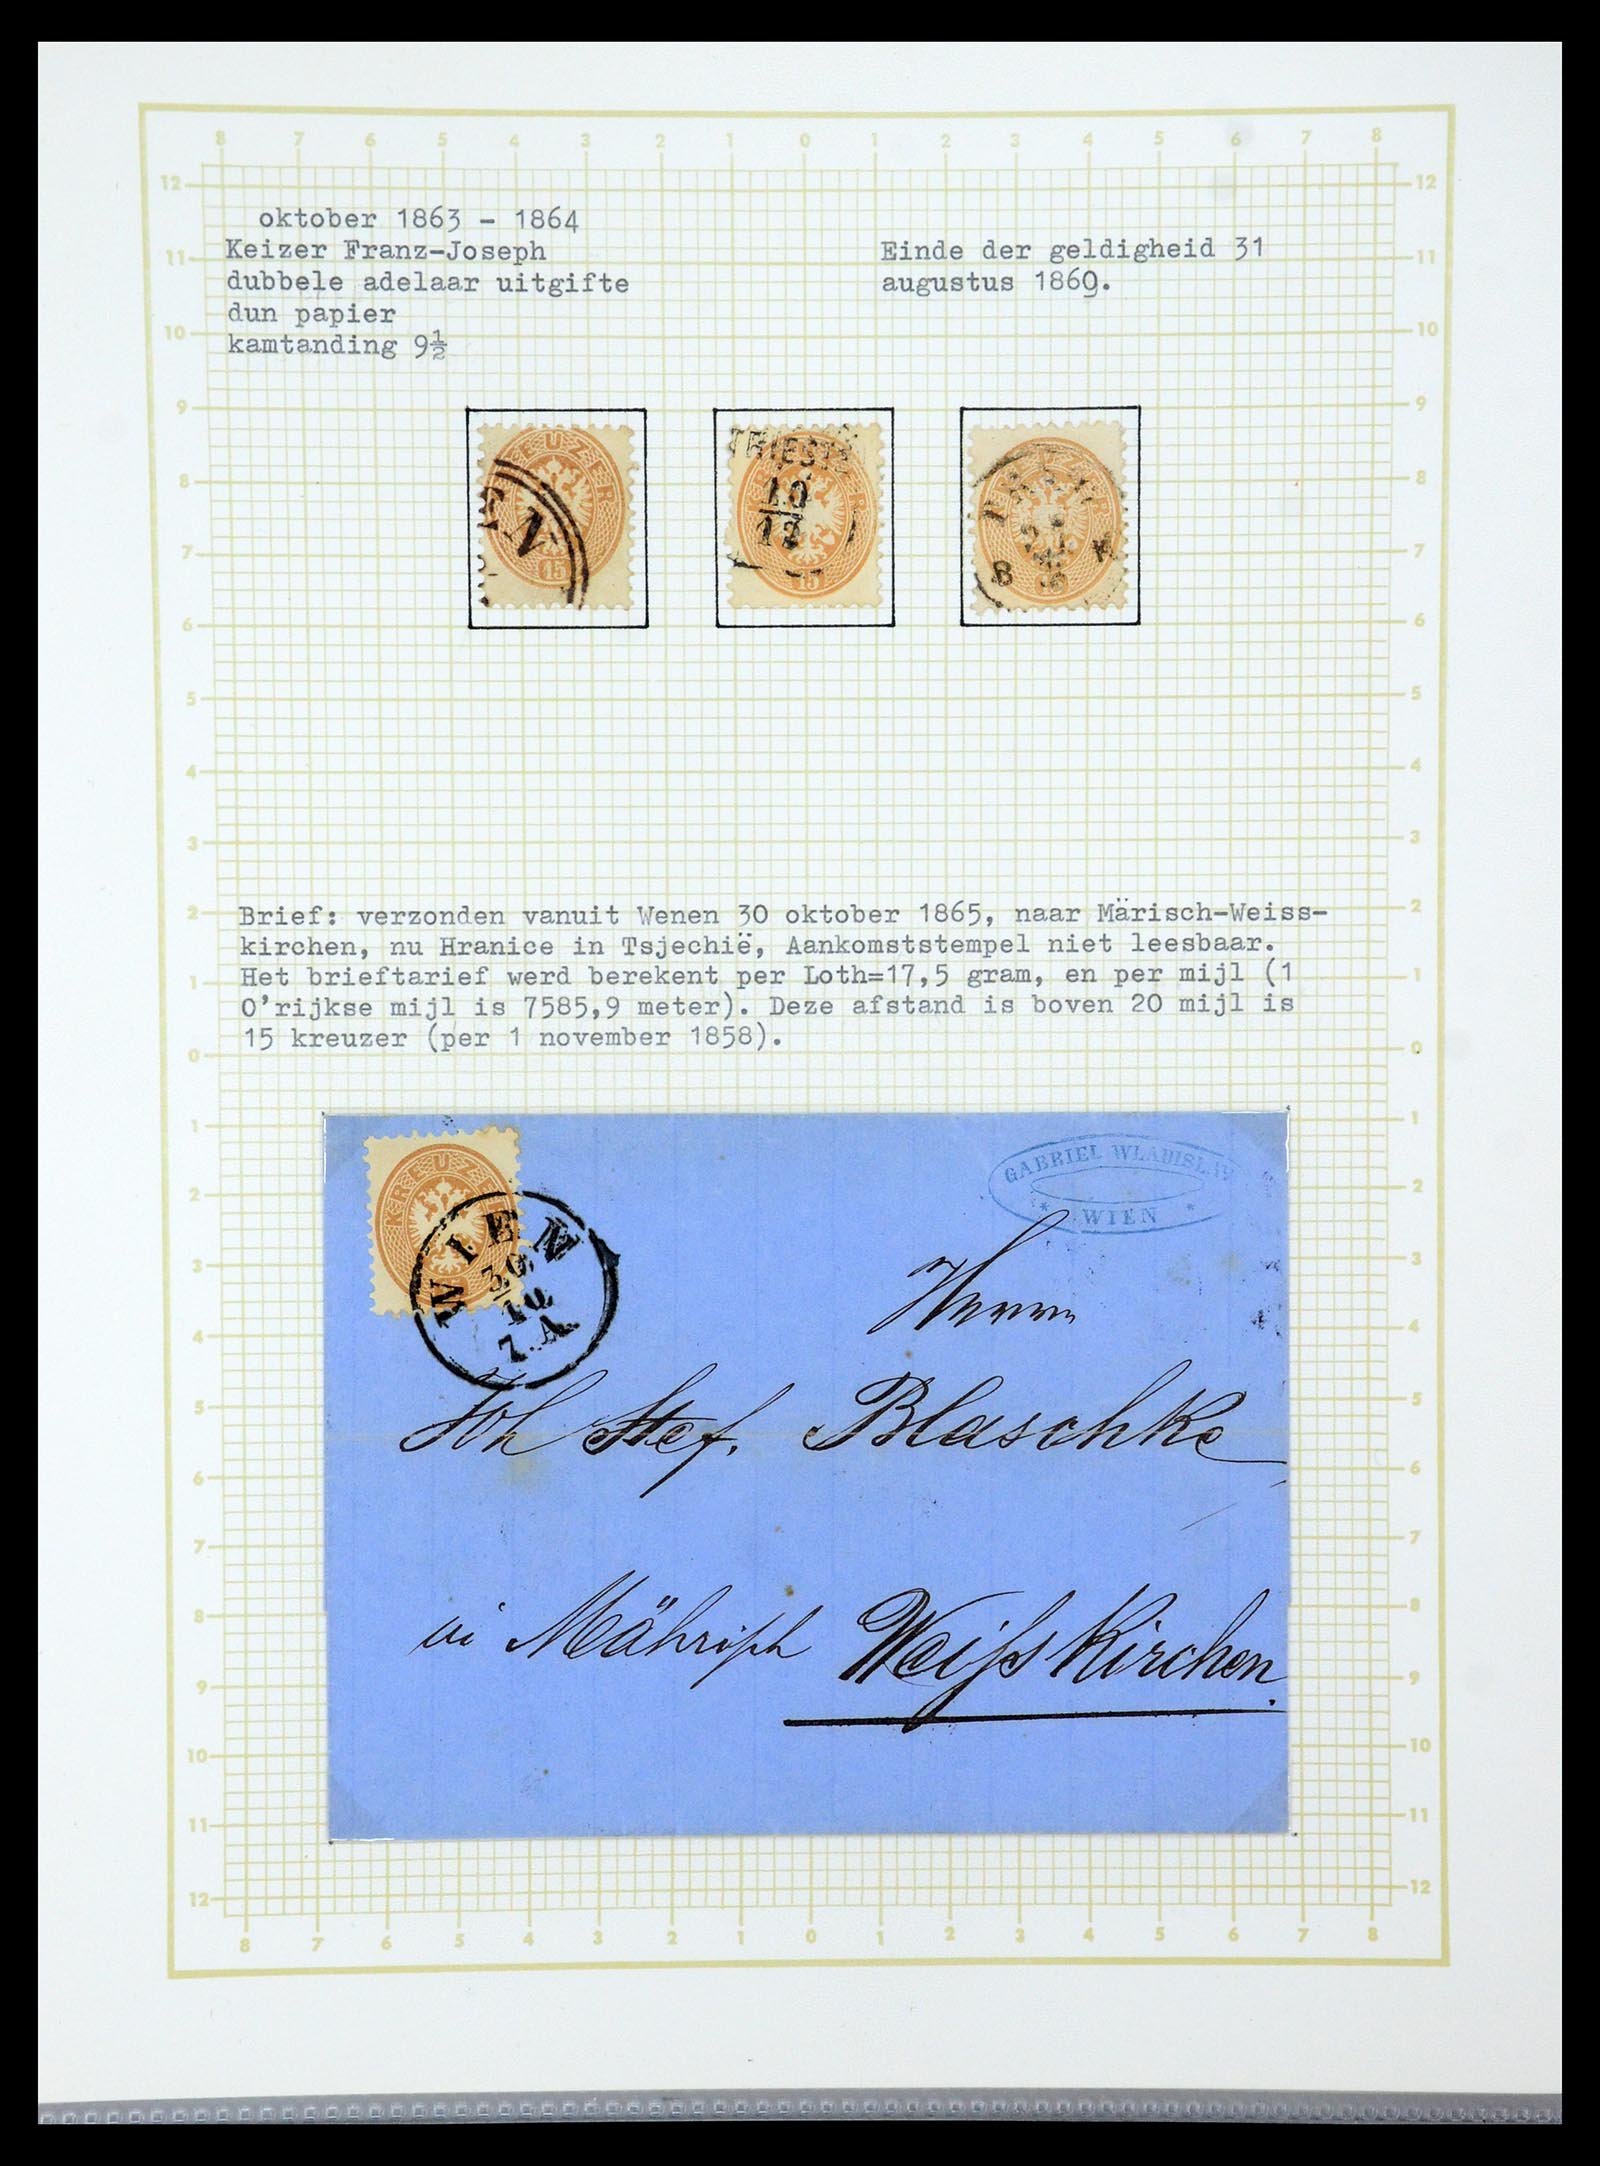 oktober 1863 - 1864
Keizer Franz-Joseph
dubbele adelaar uitgifte
dun papier
kamtanding 9½
Einde der geldigheid 31
augustus 1869.
KREUZER
15
TRIESTE
10
12
15
B K
Brief: verzonden vanuit Wenen 30 oktober 1865, naar Märisch-Weiss-
kirchen, nu Hranice in Tsjechië, Aankomststempel niet leesbaar.
Het brieftarief werd berekent per Loth=17,5 gram, en per mijl (1
O'rijkse mijl is 7585,9 meter). Deze afstand is boven 20 mijl is
15 kreuzer (per 1 november 1858).
KREUZER
WIEN
30
10
7.A.
GABRIEL WLADISLAW
* WIEN *
Herrn
Joh Stef. Blaschke
in Mährisch Weisskirchen.